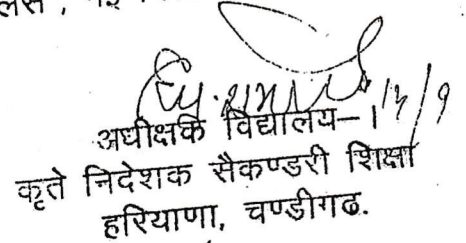 अधीक्षक विद्यालय-।
कृते निदेशक सैकण्डरी शिक्षा
हरियाणा, चण्डीगढ.